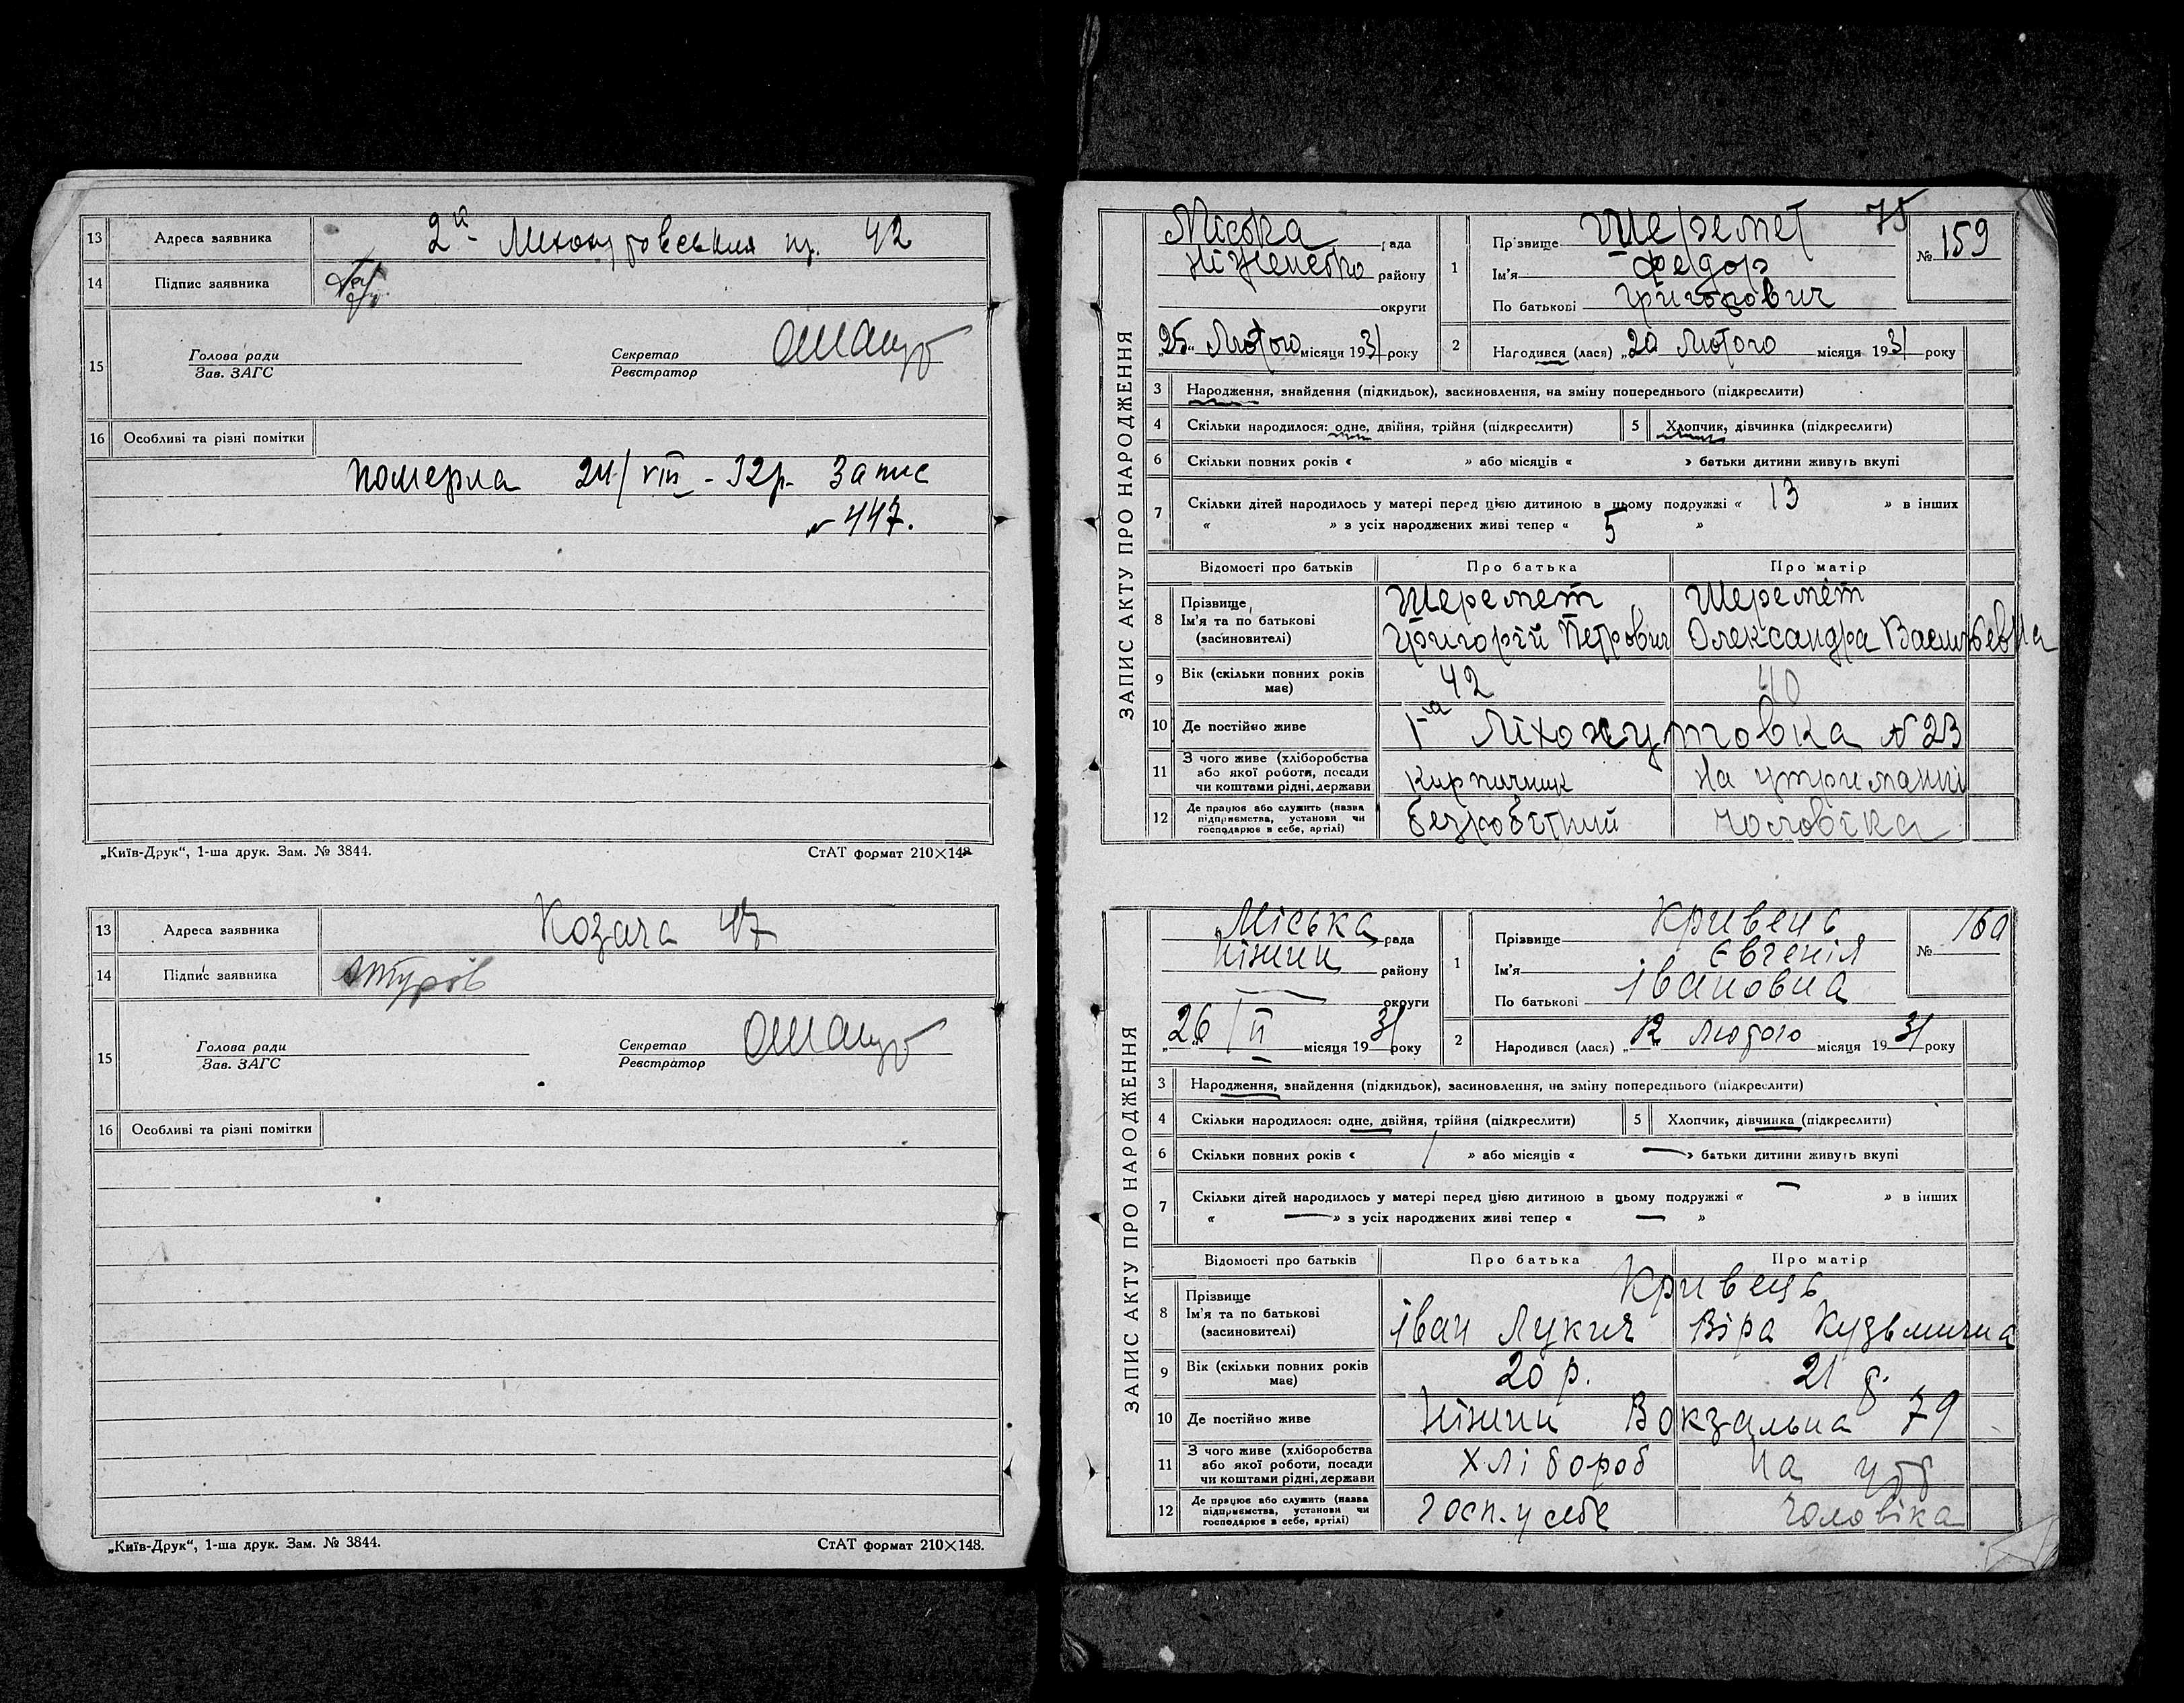 13 Адреса заявника 2а Лихошутовська 42
14 Підпис заявника
15 Голова ради Секретар
Зав. ЗАГС Реєстратор
16 Особливі та різні помітки
померла 24/VIII - 32р. Запис
№ 447.
„Київ-Друк“, 1-ша друк. Зам. № 3844. СтАТ формат 210×148.
13 Адреса заявника Козача 47
14 Підпис заявника
15 Голова ради Секретар
Зав. ЗАГС Реєстратор
16 Особливі та різні помітки
„Київ-Друк“, 1-ша друк. Зам. № 3844. СтАТ формат 210×148.
75
ЗАПИС АКТУ ПРО НАРОДЖЕННЯ
Міська рада
району
округи
„25“ Лютого місяця 1931 року
1 Прізвище Шеремет
Ім'я Федор
По батькові Григорович
№ 159
2 Народився (лася) „20 Лютого місяця 1931 року
3 Народження, знайдення (підкидьок), засиновлення, на зміну попереднього (підкреслити)
4 Скільки народилося: одне, двійня, трійня (підкреслити) 5 Хлопчик, дівчинка (підкреслити)
6 Скільки повних років « » або місяців « » батьки дитини живуть вкупі
7 Скільки дітей народилось у матері перед цією дитиною в цьому подружжі « 13 » в інших
« » з усіх народжених живі тепер « 5 »
Відомості про батьків Про батька Про матір
8 Прізвище, Ім'я та по батькові (засиновителі) Шеремет Шеремет
Григорій Петрович Олександра Васильевна
9 Вік (скільки повних років має) 42 40
10 Де постійно живе 1-а Ліхошутовка № 23
11 З чого живе (хліборобства або якої роботи, посади чи коштами рідні, держави Кирпичник На утриманні
12 Де працює або служить (назва підприємства, установи чи господарює в себе, артілі) безробітний чоловіка
ЗАПИС АКТУ ПРО НАРОДЖЕННЯ
Міська рада
Ніжин району
округи
„26“/II місяця 1931 року
1 Прізвище Кривець
Ім'я Євгенія
По батькові Івановна
№ 160
2 Народився (лася) „12 лютого місяця 1931 року
3 Народження, знайдення (підкидьок), засиновлення, на зміну попереднього (підкреслити)
4 Скільки народилося: одне, двійня, трійня (підкреслити) 5 Хлопчик, дівчинка (підкреслити)
6 Скільки повних років « / » або місяців « — » батьки дитини живуть вкупі
7 Скільки дітей народилось у матері перед цією дитиною в цьому подружжі « — » в інших
« — » з усіх народжених живі тепер « — »
Відомості про батьків Про батька Про матір
8 Прізвище Ім'я та по батькові (засиновителі) Кривець
Іван Лукич Віра Кузьмична
9 Вік (скільки повних років має) 20 р. 21 р.
10 Де постійно живе Ніжин Вокзальна 79
11 З чого живе (хліборобства або якої роботи, посади чи коштами рідні, держави Хлібороб На утр
12 Де працює або служить (назва підприємства, установи чи господарює в себе, артілі) госп. у себе чоловіка